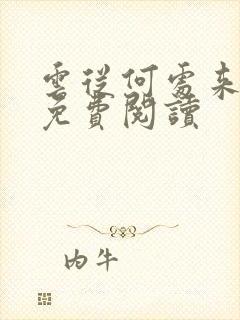 雲從何處來
免費閱讀
内牛